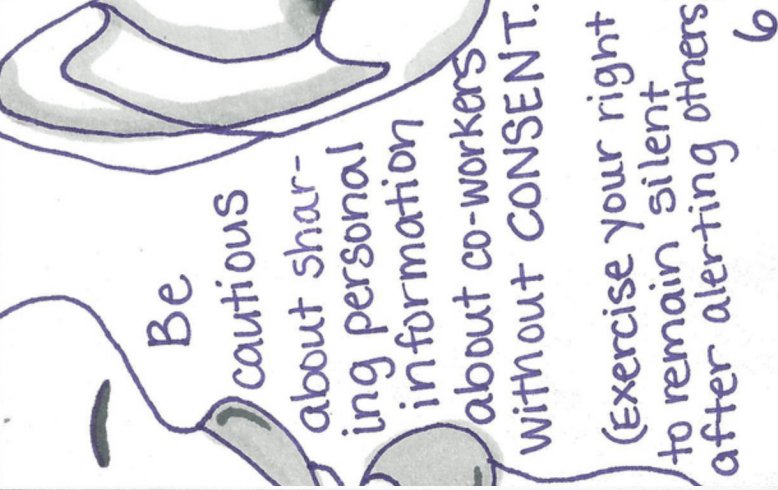 Be
cautious
about shar-
ing personal
information
about co-workers
without CONSENT.
(Exercise your right
to remain silent
after alerting others
6